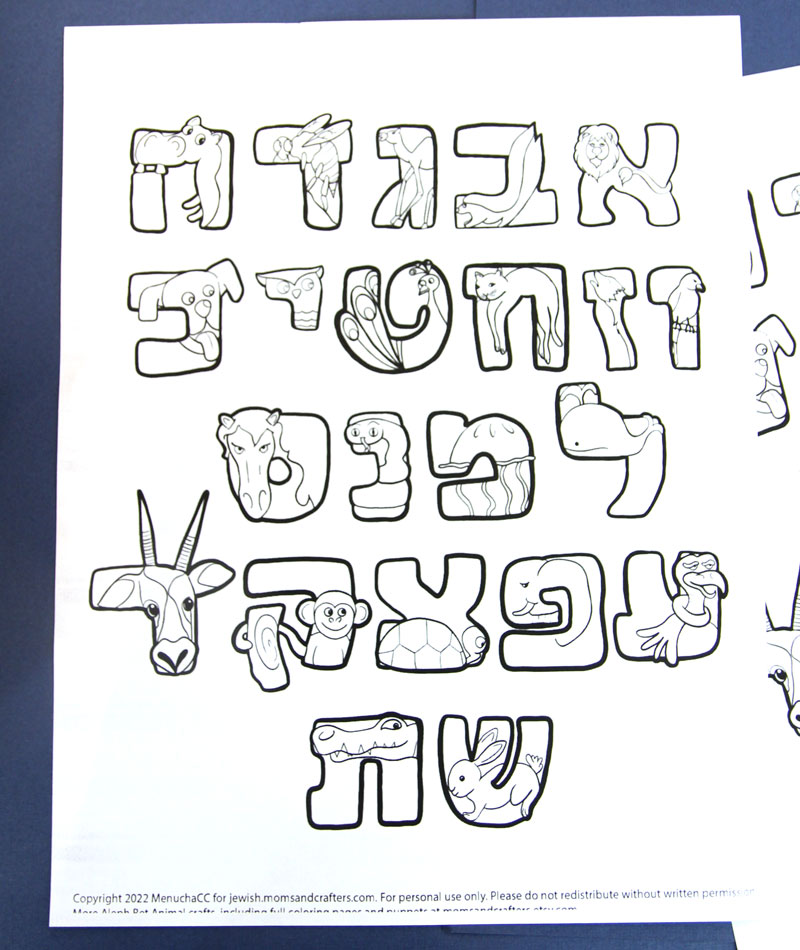 אבגדה
וזחטיכ
למנס
עפצקר
שת
Copyright 2022 MenuchaCC for jewish.momsandcrafters.com. For personal use only. Please do not redistribute without written permission
More Aleph Bet Animal crafts, including full coloring pages and puppets at momsandcrafters.etsy.com